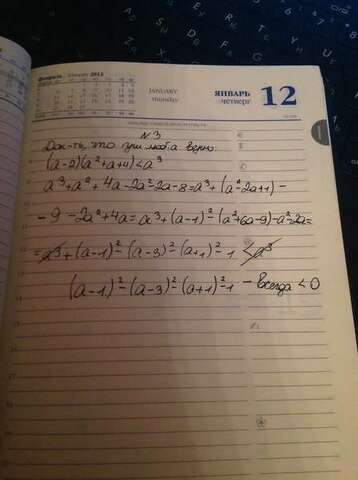 Февраль
2012
JANUARY
thursday
ЯНВАРЬ
четверг
12
N3
Док-ть, что при люб а верно:
(a-2)(a²+a+4)<a³
a³+a²+4a-2a²-2a-8=a³+(a²-2a+1)-
-9-2a²+4a=a³+(a-1)²-(a²+6a-9)-a²-2a=
=a³+(a-1)²-(a-3)²-(a+1)²-1<a³
(a-1)²-(a-3)²-(a+1)²-1 - всегда <0